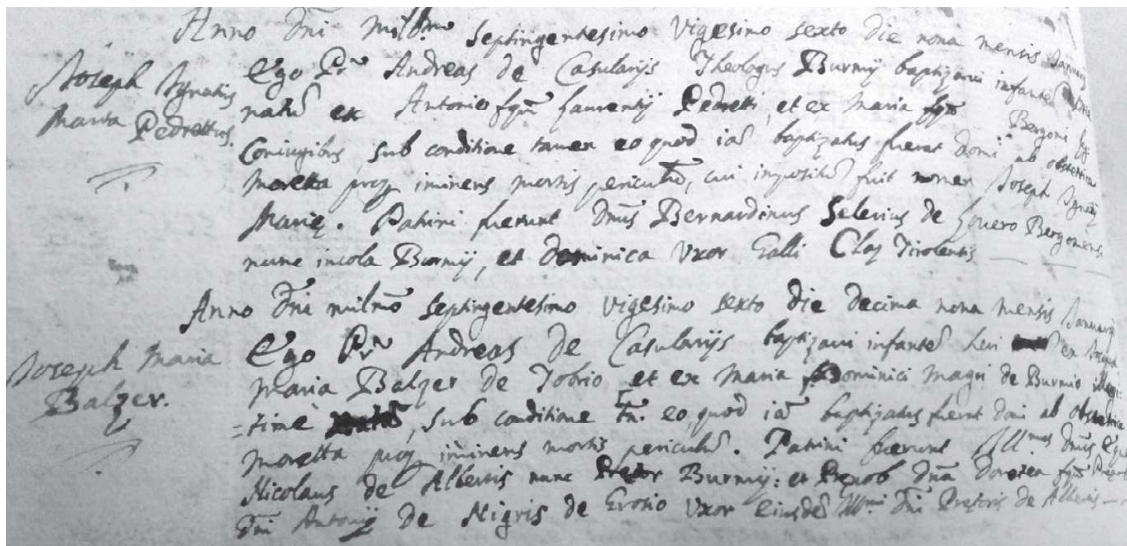 Anno Dni Millmo Septingentesimo Vigesimo Sexto die nona mensis Januarij
Joseph Ignatis
Maria Pedrettus.
Ego Pr Andreas de Casularijs Theologus Burmij baptizavi infante
natu ex Antonio fqm Laurentij Pedretti, et ex Maria fqm Bergoni
Coniugibus sub conditione tamen eo quod ia baptizatus fuerat domi ab obstetrice
Moretta prop iminens mortis periculu, cui impositu fuit nomen Joseph Ignatij
Marie. Patrini fuerunt Dnus Bernardinus Selerius de Louero Bergomens
nunc incola Burmij, et Dominica Uxor Galli Clos Tirolensis
Anno Dni milmo Septingentesimo Vigesimo Sexto die decima nona mensis Januarij
Joseph Maria
Balzer.
Ego Pr Andreas de Casularijs baptizavi infante heri ex Joseph
Maria Balzer de Tobrio et ex Maria Dominici Magri de Burmio illegi=
=time, sub conditione tn. eo, quod ia baptizatus fuerat domi ab obstetrice
Moretta prop iminens mortis periculu. Patrini fuerunt Illmus Dnus
Nicolaus de Albertis nunc Pretor Burmij: et Dna Dorotea
Dni Antonij de Nigris de Grosio Uxor eiusde Illmi Dni Pretoris de Albertis